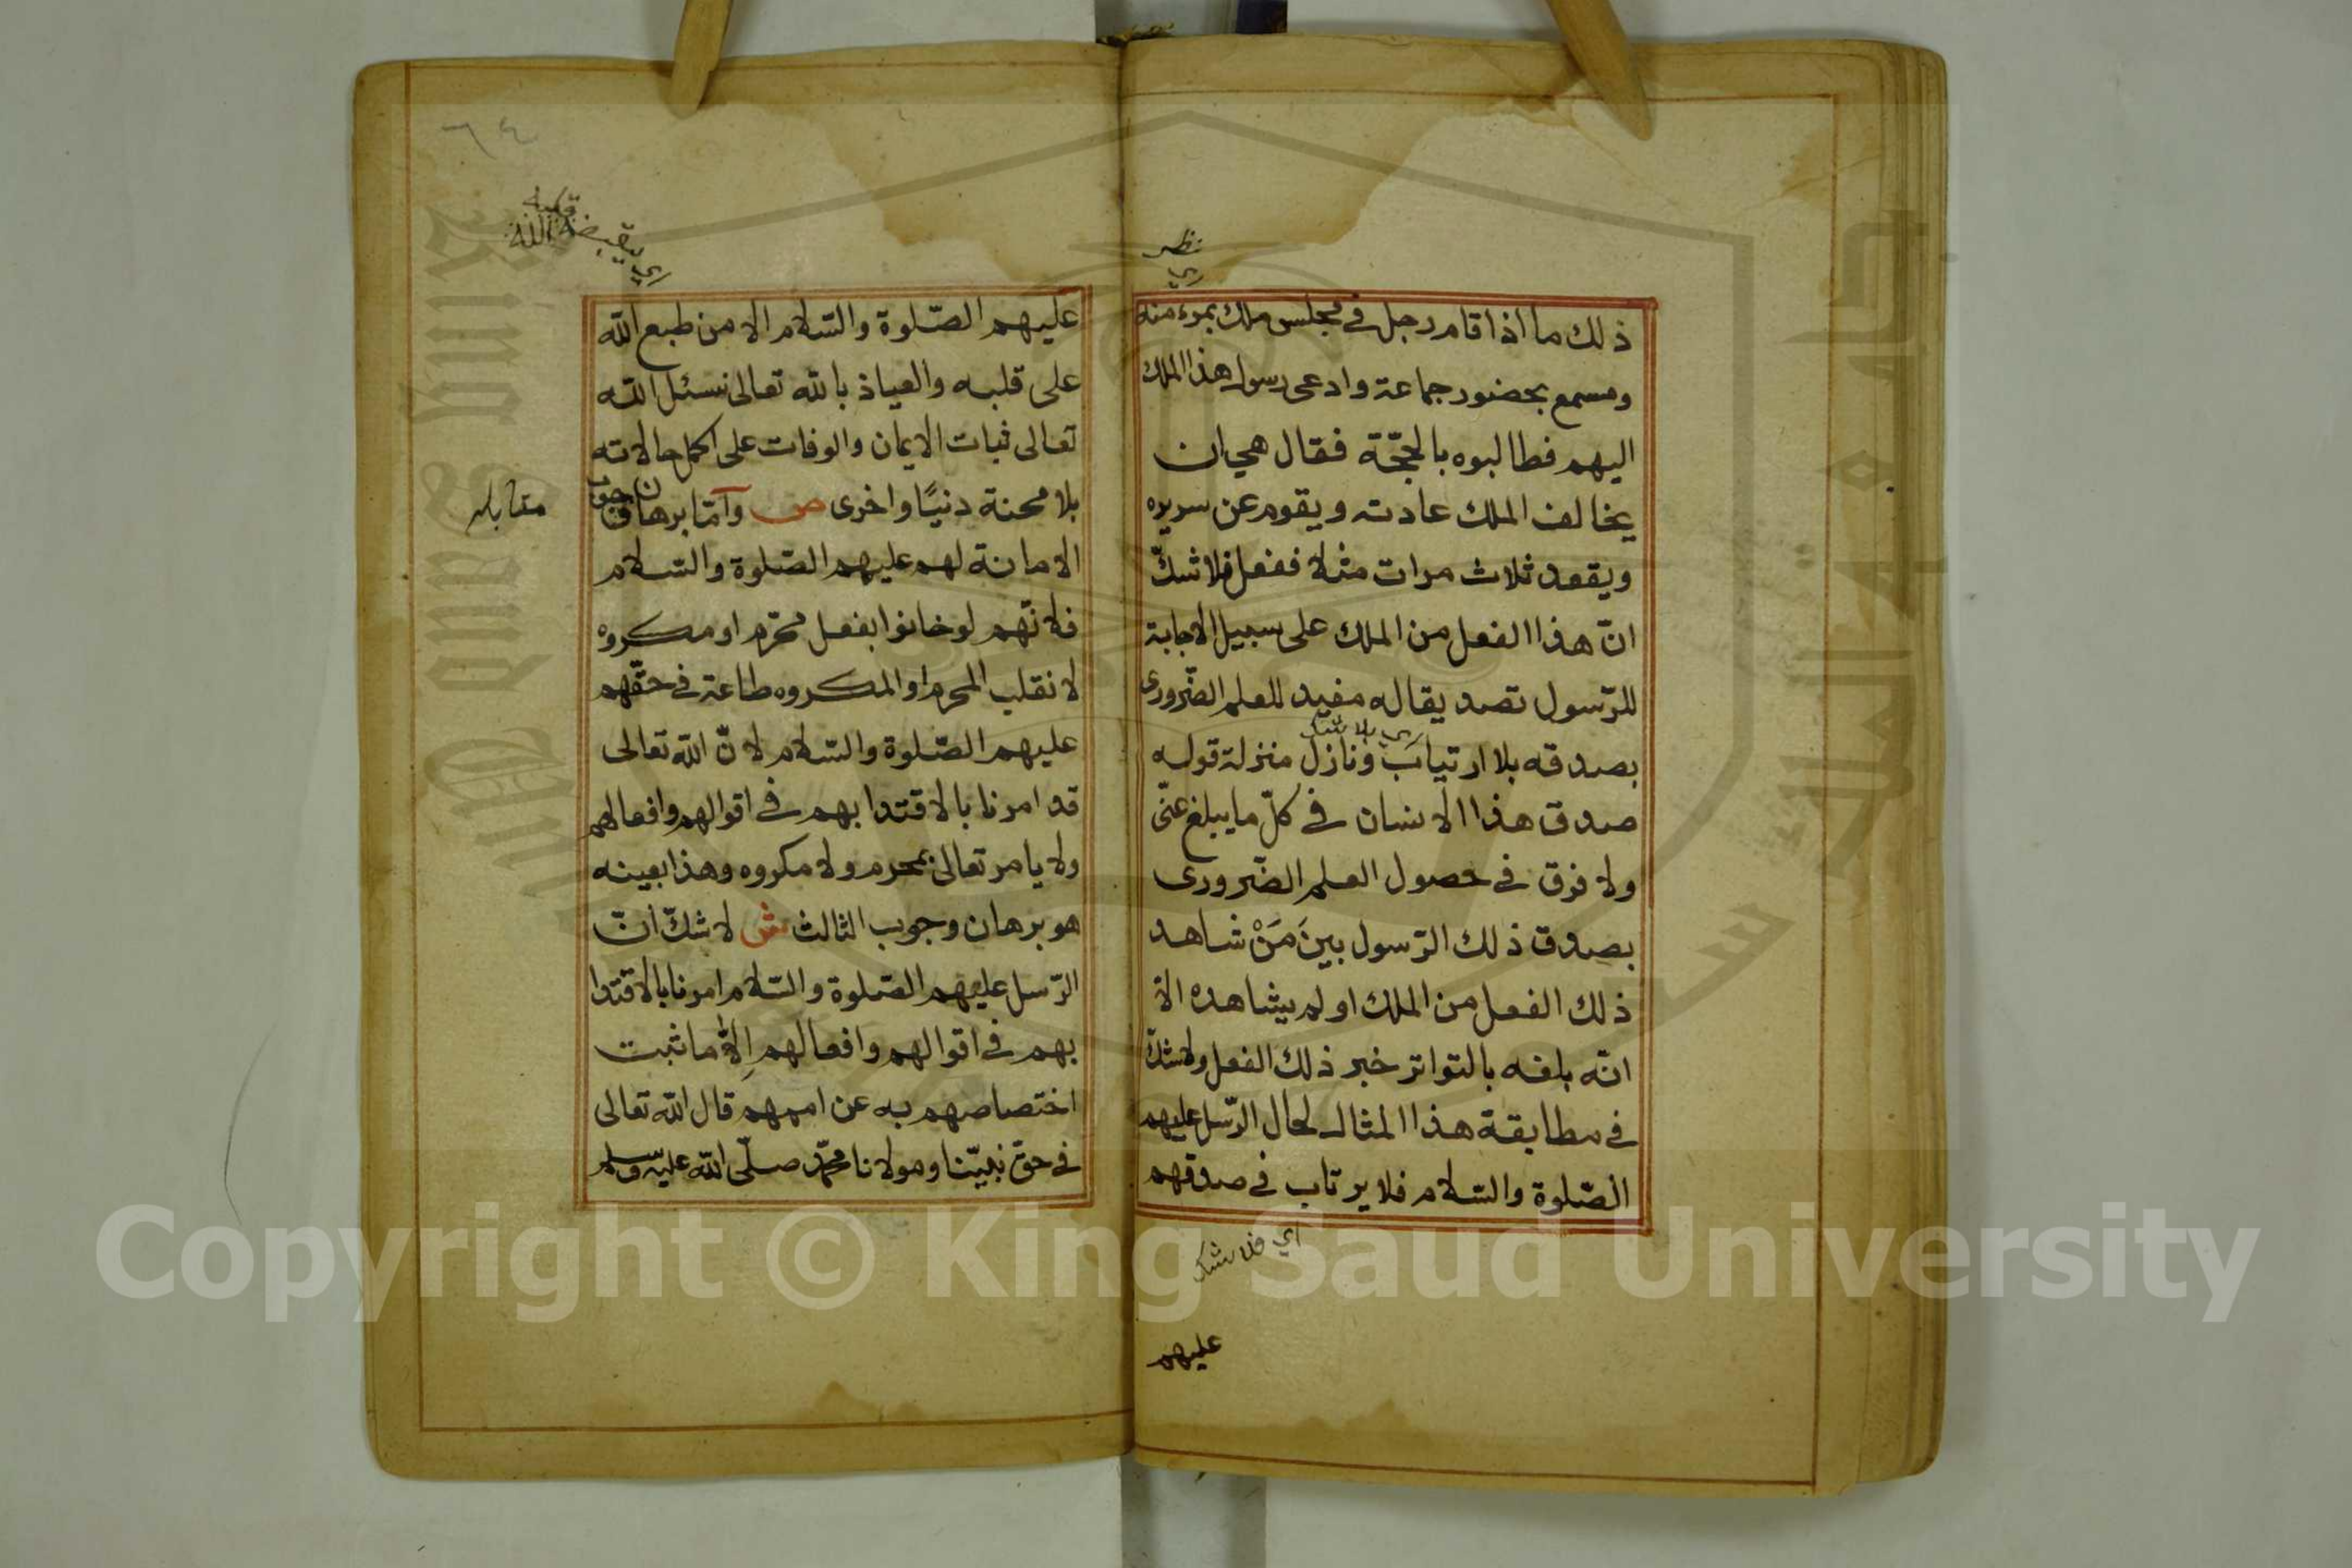 نظر
اي
ذلك ما اذا قام رجل في مجلس ملك بمرء منه
ومسمع بحضور جماعة وادعى رسول هذا الملك
اليهم فطالبوه بالحجّة فقال هي ان
يخالف الملك عادته ويقوم عن سريره
ويقعد ثلاث مرات مثلا ففعل فلا شكّ
انّ هذا الفعل من الملك على سبيل الاجابة
للرّسول تصديقا له مفيد للعلم الضّرورى
اي بلا شك
بصدقه بلا ارتياب ونازل منزلة قوله
صدق هذا الانسان في كلّ ما يبلغ عنّى
ولا فرق في حصول العلم الضّرورى
بصدق ذلك الرّسول بينَ مَنْ شاهد
ذلك الفعل من الملك او لم يشاهده الا
انّه بلغه بالتواتر خبر ذلك الفعل ولا شك
في مطابقة هذا المثال لحال الرّسل عليهم
الصّلوة والسّلام فلا يرتاب في صدقهم
اي فلا يشك
عليهم
٦٤
قلبه
اي يقبضه الله
عليهم الصّلوة والسّلام الا من طبع اللّه
على قلبه والعياذ باللّه تعالى نسئل اللّه
تعالى ثبات الايمان والوفات على اكمل حالاته
بلا محنة دنيًا واخرى ص وامّا برهان وجوب
مقابله
الامانة لهم عليهم الصّلوة والسّلام
فلانّهم لو خانوا بفعل محرّم او مكروه
لانقلب المحرم او المكروه طاعة في حقّهم
عليهم الصّلوة والسّلام لانّ اللّه تعالى
قد امرنا بالاقتدا بهم في اقوالهم وافعالهم
ولا يامر تعالى بمحرم ولا مكروه وهذا بعينه
هو برهان وجوب الثالث ش لا شكّ انّ
الرّسل عليهم الصّلوة والسّلام امرنا بالاقتدا
بهم في اقوالهم وافعالهم اِلّا ما ثبت
اختصاصهم به عن اممهم قال اللّه تعالى
في حق نبيّنا ومولانا محمّد صلّى اللّه عليه وسلم
Copyright © King Saud University